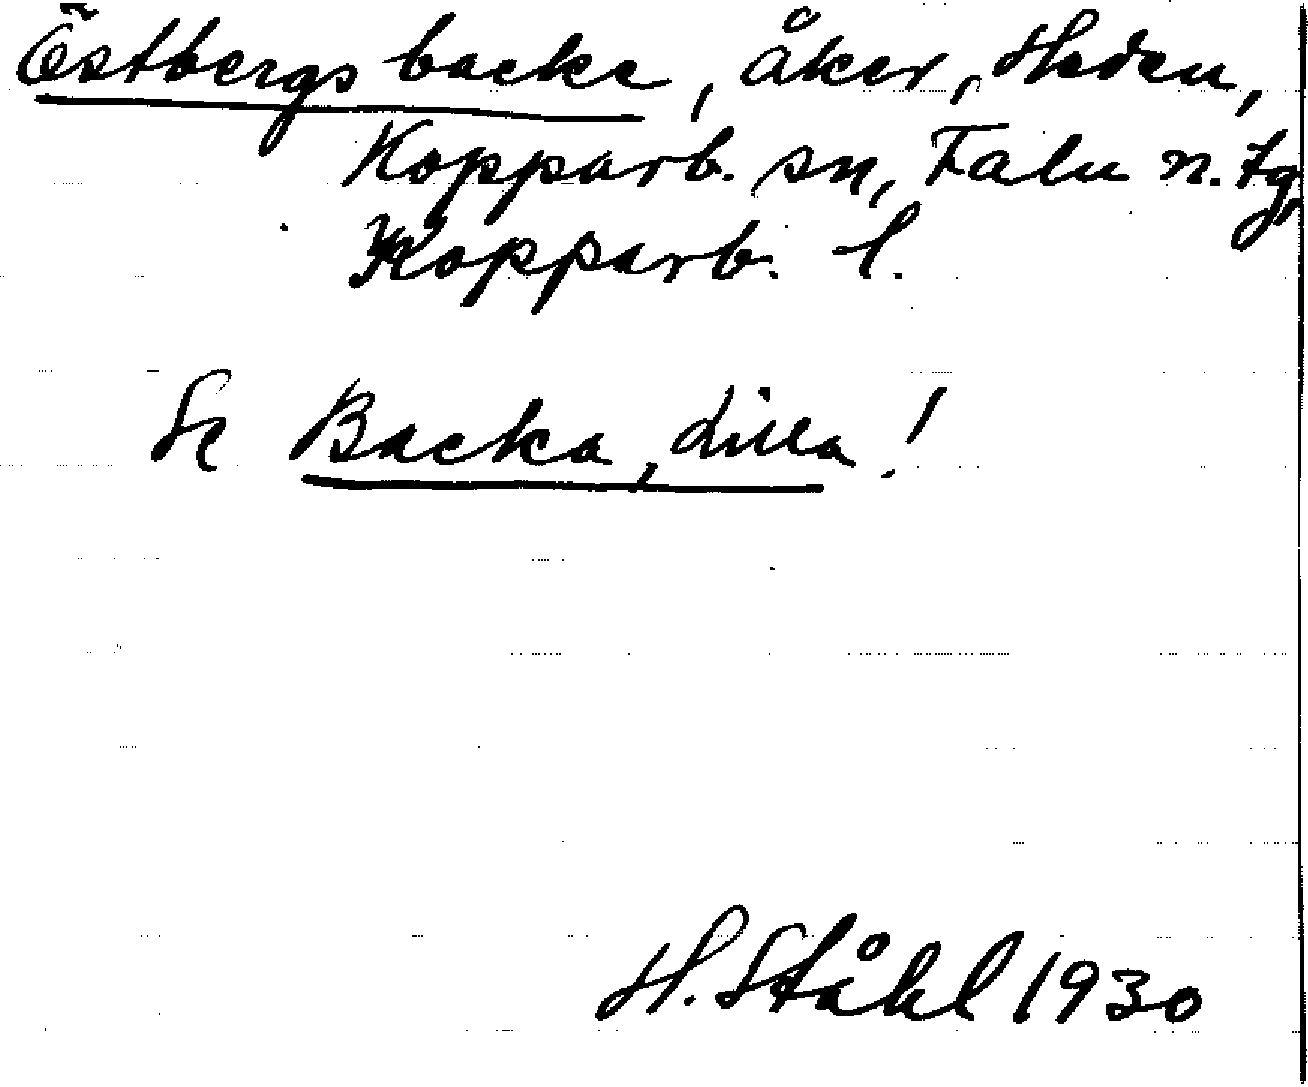 Östbergs backe, åker, Heden,
Kopparb. sn, Falu n. tg,
Kopparb. l.
Se Backa, Lilla!
H. Ståhl 1930